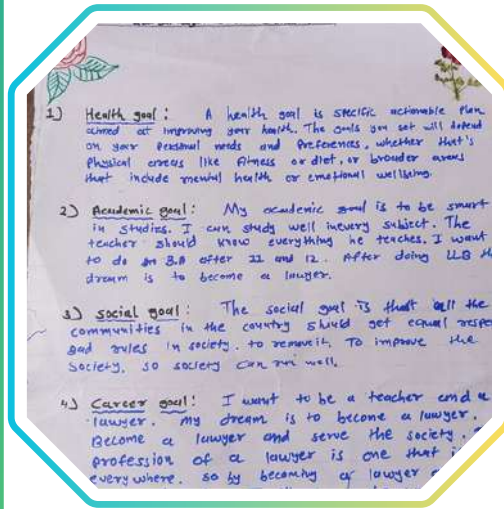 1) Health goal : A health goal is specific actionable plan
aimed at improving your health. The goals you set will depend
on your personal needs and preferences, whether that's
physical areas like fitness or diet, or broader areas
that include mental health or emotional wellbeing.
2) Academic goal : My academic goal is to be smart
in studies. I can study well inevery subject. The
teacher should know everything he teaches. I want
to do an B.A after 11 and 12. After doing LLB
dream is to become a lawyer.
3) social goal : The social goal is that all the
communities in the country should get equal
bad rules in society. to remove it, To improve the
society, so society can run well.
4) Career goal : I want to be a teacher and a
lawyer. my dream is to become a lawyer.
Become a lawyer and serve the society.
profession of a lawyer is one that
everywhere. so by becoming a lawyer